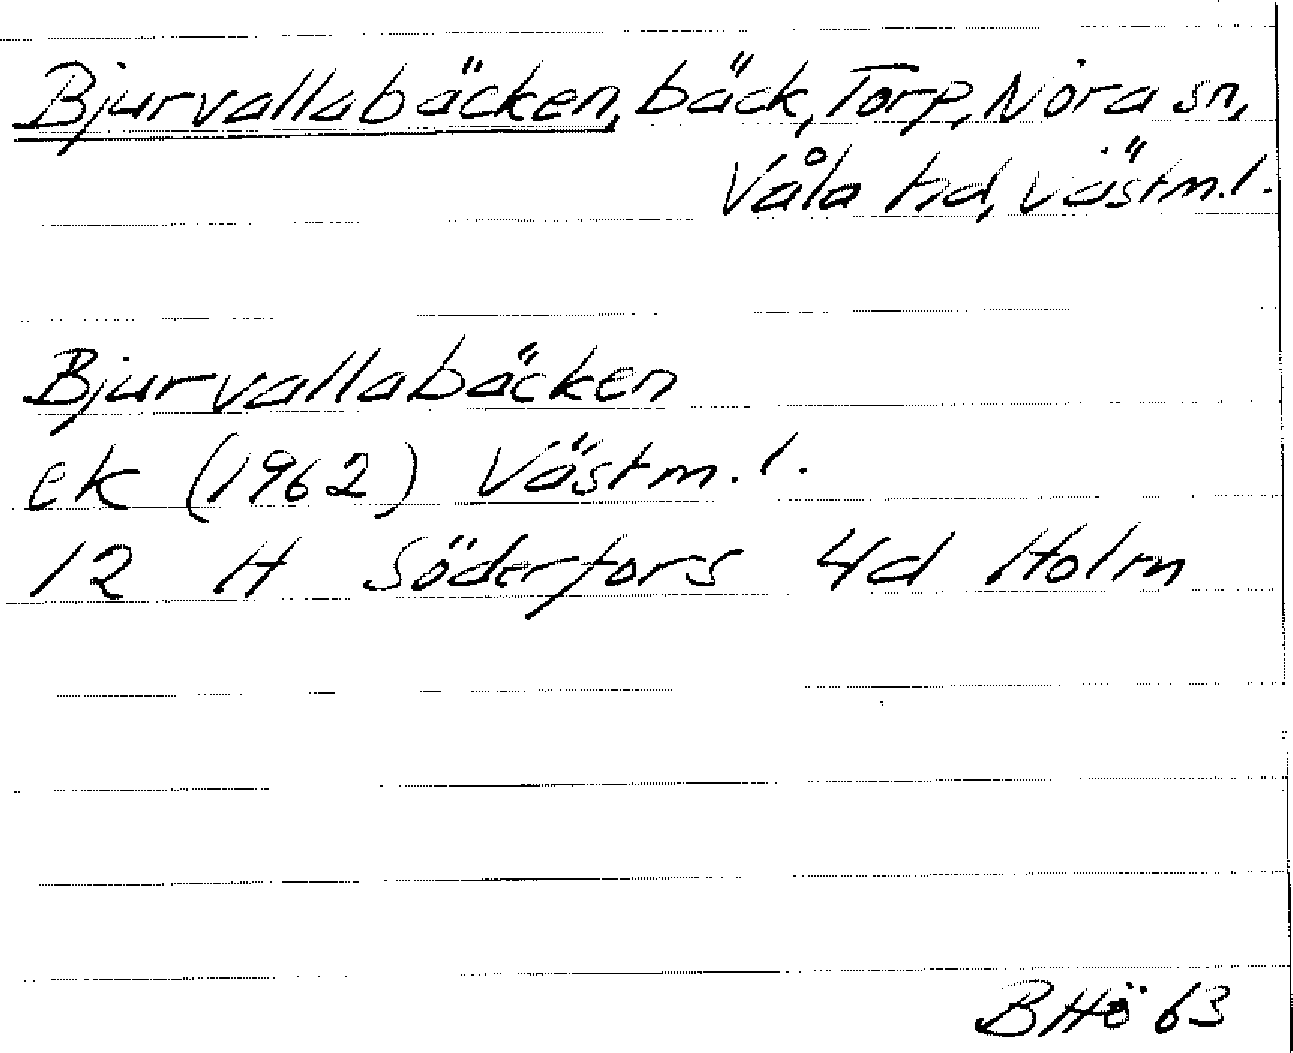 Bjurvallabäcken, bäck, Torp, Nora sn,
Våla hd, Västm.l.
Bjurvallabäcken
ek (1962) Västm.l.
12 H Söderfors 4d Holm
BHö 63